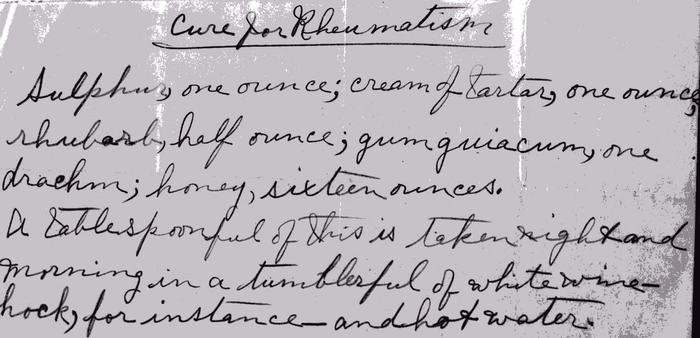 Cure for Rheumatism
Sulphur, one ounce; cream of tartar, one ounce;
rhubarb, half ounce; gum guiacum, one
drachm; honey, sixteen ounces.
A tablespoonful of this is taken night and
morning in a tumblerful of white wine—
hock, for instance—and hot water.